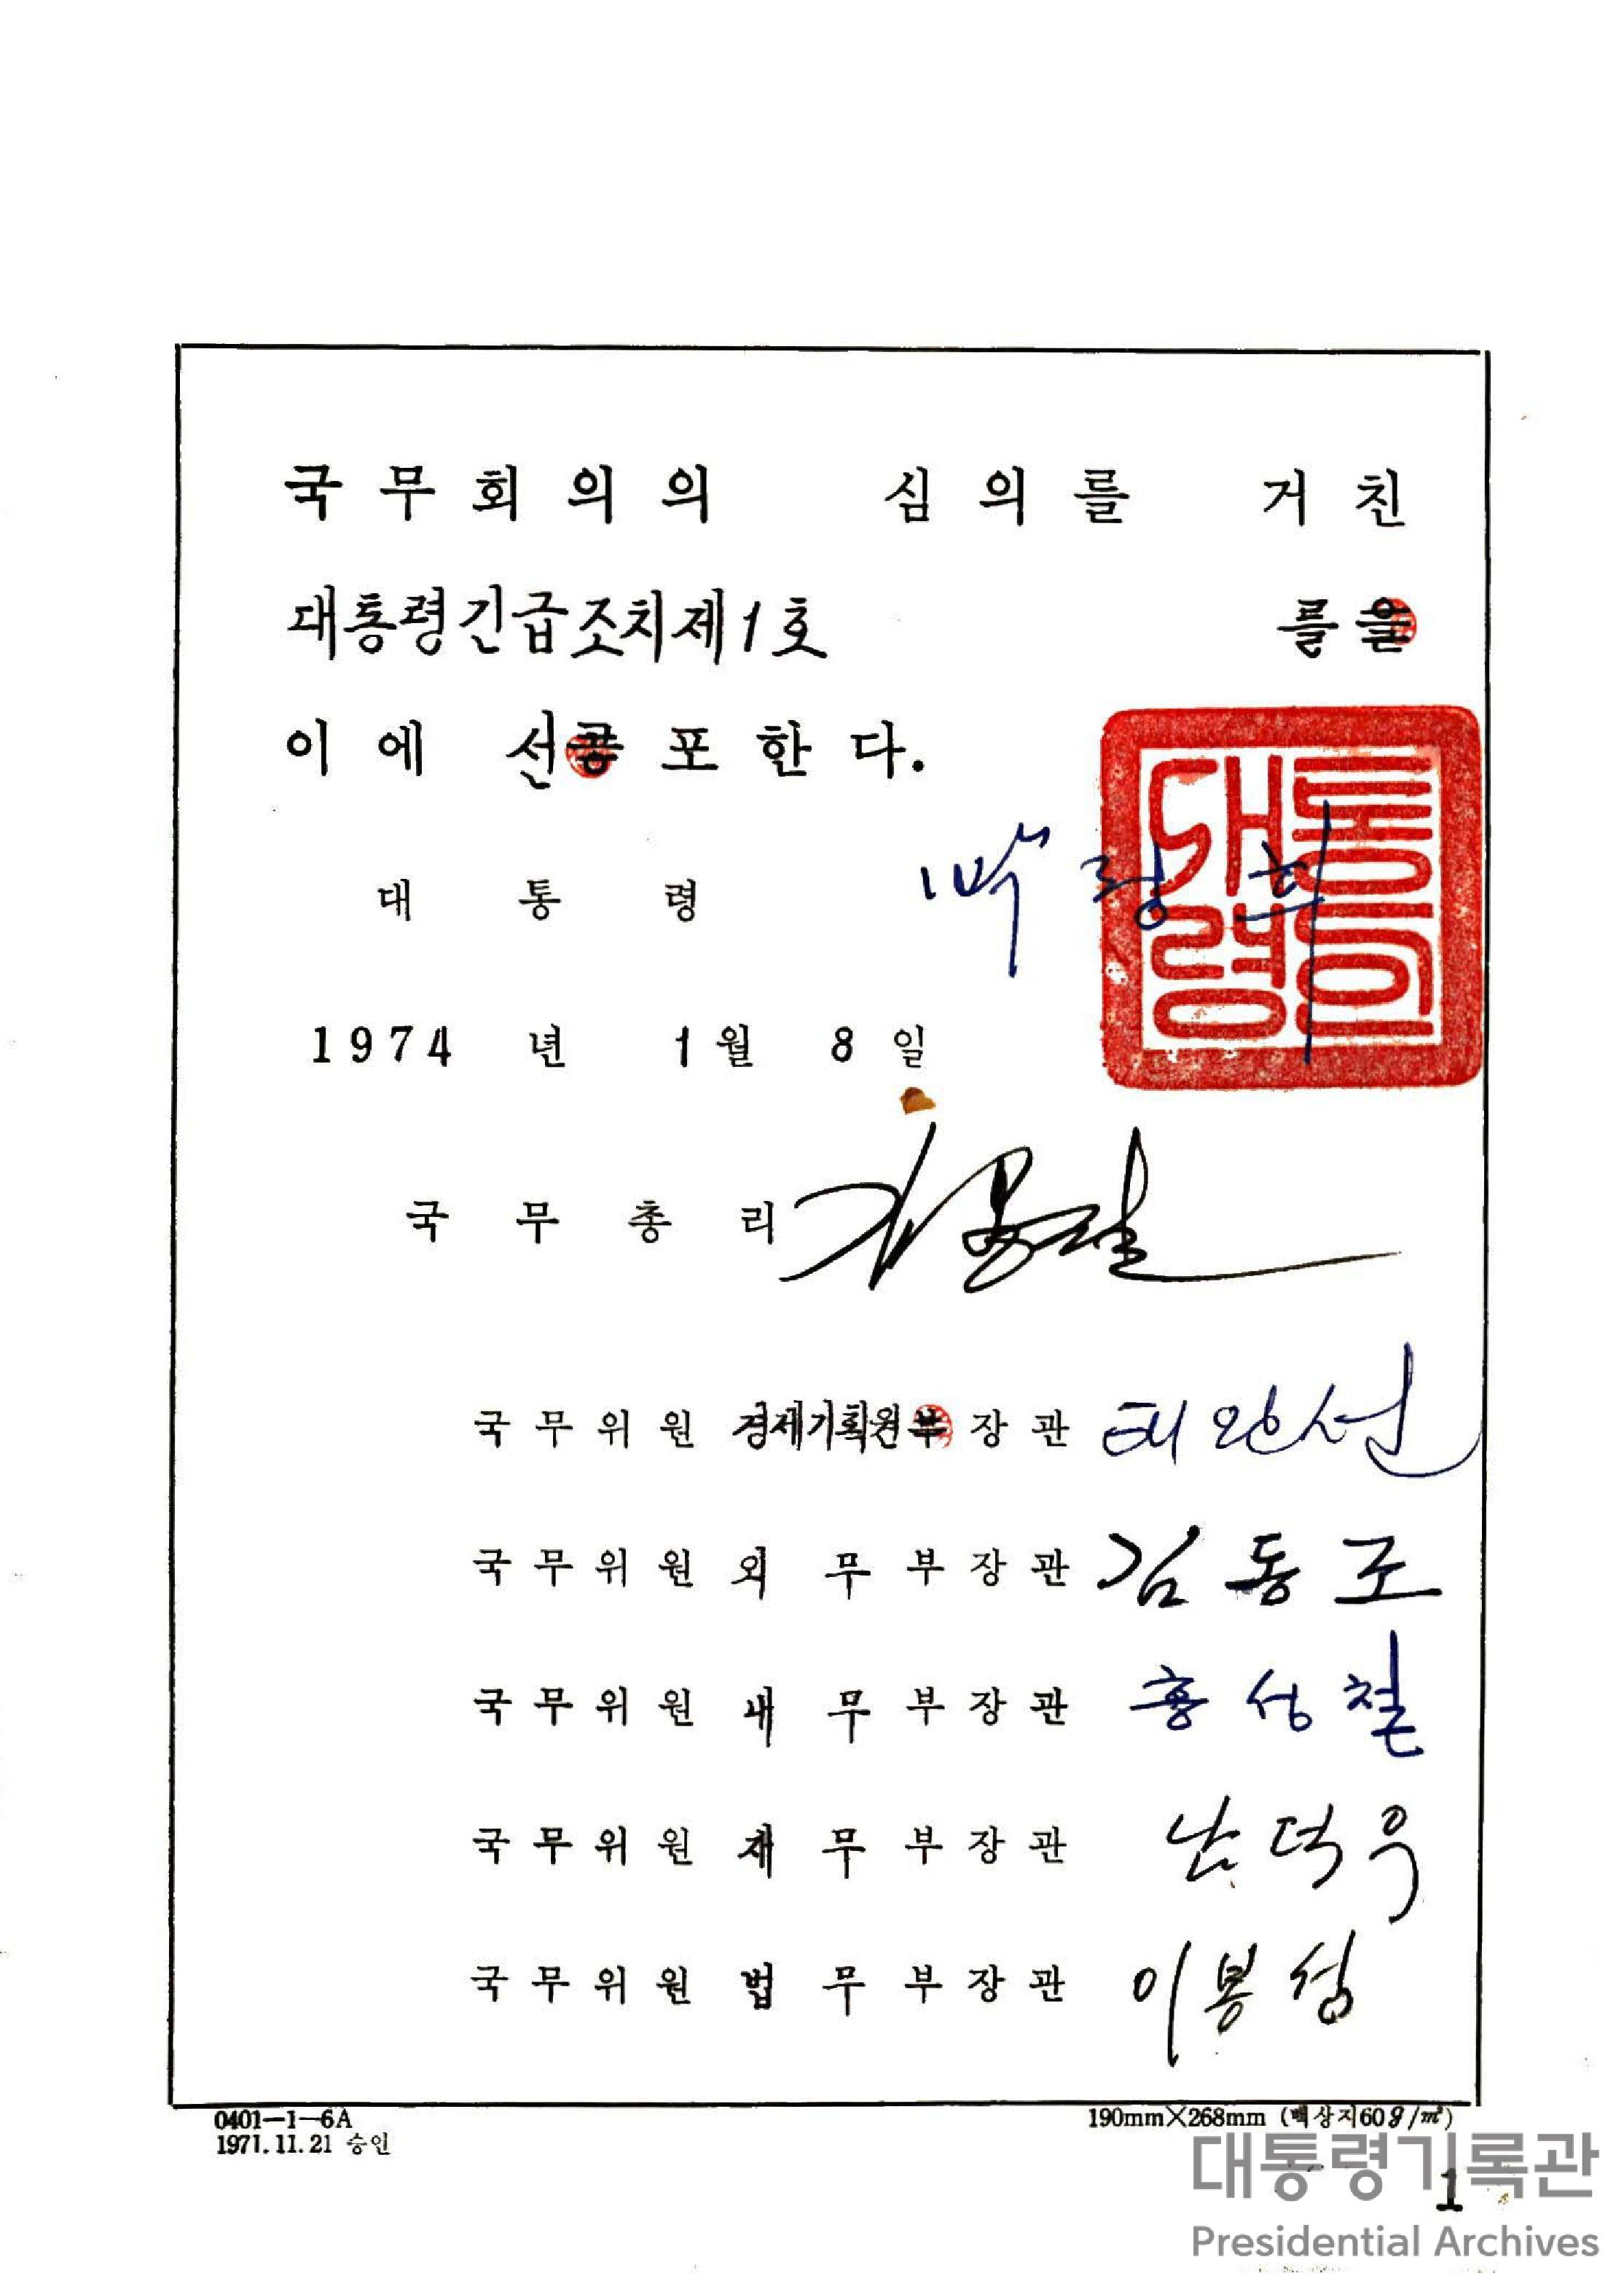 국무회의의 심의를 거친
대통령긴급조치제1호 를을
이에 선공포한다.
대통령 박정희
대통령의
1974년 1월 8일
국무총리 김종필
국무위원 경제기획원부장관 태완선
국무위원 외무부장관 김동조
국무위원 내무부장관 홍성철
국무위원 재무부장관 남덕우
국무위원 법무부장관 이봉성
0401-1-6A
1971.11.21 승인
190mm×268mm (백상지60g/㎡)
대통령기록관
1
Presidential Archives